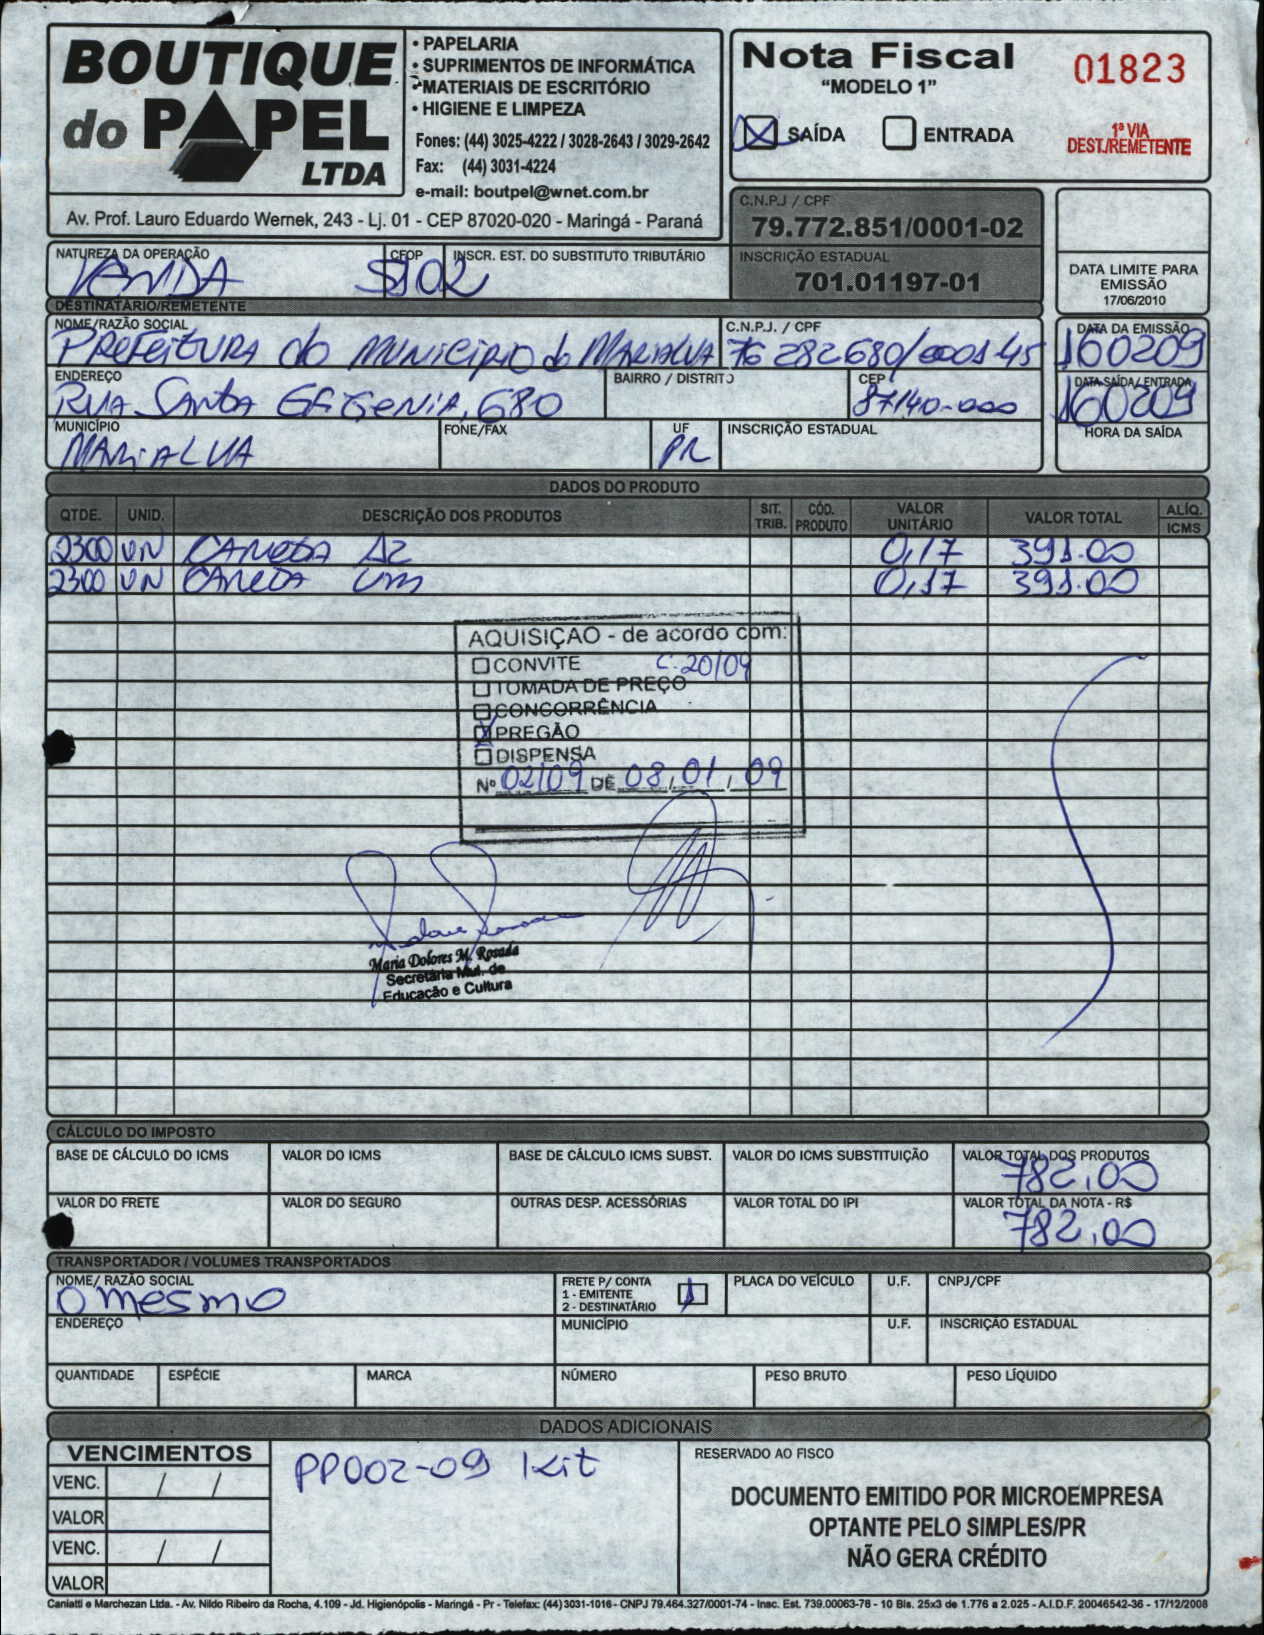 BOUTIQUE
do PAPEL
LTDA
• PAPELARIA
• SUPRIMENTOS DE INFORMÁTICA
• MATERIAIS DE ESCRITÓRIO
• HIGIENE E LIMPEZA
Fones: (44) 3025-4222 / 3028-2643 / 3029-2642
Fax: (44) 3031-4224
e-mail: boutpel@wnet.com.br
Av. Prof. Lauro Eduardo Wernek, 243 - Lj. 01 - CEP 87020-020 - Maringá - Paraná
Nota Fiscal
"MODELO 1"
01823
SAÍDA ENTRADA
1ª VIA
DEST./REMETENTE
C.N.P.J / CPF
79.772.851/0001-02
INSCRIÇÃO ESTADUAL
701.01197-01
DATA LIMITE PARA
EMISSÃO
17/06/2010
NATUREZA DA OPERAÇÃO CFOP INSCR. EST. DO SUBSTITUTO TRIBUTÁRIO
VENDA 5102
DESTINATÁRIO/REMETENTE
NOME/RAZÃO SOCIAL C.N.P.J. / CPF DATA DA EMISSÃO
PREFEITURA do MUNICIPIO do MARIALVA 76 282680/0001-45 160209
ENDEREÇO BAIRRO / DISTRITO CEP DATA SAÍDA / ENTRADA
RUA SANTA EFIGENIA, 680 87140-000 160209
MUNICÍPIO FONE/FAX UF INSCRIÇÃO ESTADUAL HORA DA SAÍDA
MARIALVA PR
DADOS DO PRODUTO
QTDE. UNID. DESCRIÇÃO DOS PRODUTOS SIT. TRIB. CÓD. PRODUTO VALOR UNITÁRIO VALOR TOTAL ALÍQ. ICMS
2300 UN CANETA AZ 0,17 391.00
2300 UN CANETA VM 0,17 391.00
AQUISIÇÃO - de acordo com:
CONVITE C. 20/09
TOMADA DE PREÇO
CONCORRÊNCIA
PREGÃO
DISPENSA
Nº 02/09 DE 08, 01, 09
Maria Dolores M. Rosada
Secretária Mul. de
Educação e Cultura
CÁLCULO DO IMPOSTO
BASE DE CÁLCULO DO ICMS VALOR DO ICMS BASE DE CÁLCULO ICMS SUBST. VALOR DO ICMS SUBSTITUIÇÃO VALOR TOTAL DOS PRODUTOS
782,00
VALOR DO FRETE VALOR DO SEGURO OUTRAS DESP. ACESSÓRIAS VALOR TOTAL DO IPI VALOR TOTAL DA NOTA - R$
782,00
TRANSPORTADOR / VOLUMES TRANSPORTADOS
NOME/ RAZÃO SOCIAL FRETE P/ CONTA PLACA DO VEÍCULO U.F. CNPJ/CPF
O mesmo 1 - EMITENTE 1
2 - DESTINATÁRIO
ENDEREÇO MUNICÍPIO U.F. INSCRIÇÃO ESTADUAL
QUANTIDADE ESPÉCIE MARCA NÚMERO PESO BRUTO PESO LÍQUIDO
DADOS ADICIONAIS
VENCIMENTOS
VENC. / /
VALOR
VENC. / /
VALOR
PP002-09 Kit
RESERVADO AO FISCO
DOCUMENTO EMITIDO POR MICROEMPRESA
OPTANTE PELO SIMPLES/PR
NÃO GERA CRÉDITO
Caniatti e Marchezan Ltda. - Av. Nildo Ribeiro da Rocha, 4.109 - Jd. Higienópolis - Maringá - Pr - Telefax: (44) 3031-1016 - CNPJ 79.464.327/0001-74 - Insc. Est. 739.00063-76 - 10 Bls. 25x3 de 1.776 a 2.025 - A.I.D.F. 20046542-36 - 17/12/2008